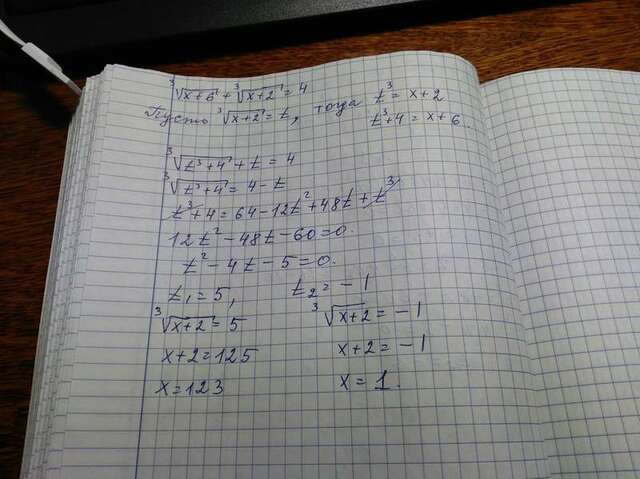 ∛x+6 + ∛x+2 = 4
Пусть ∛x+2 = t, тогда t³ = x+2
t³+4 = x+6
∛t³+4 + t = 4
∛t³+4 = 4-t
t³+4 = 64-12t²+48t+t³
12t²-48t-60=0.
t²-4t-5=0.
t₁=5, t₂=-1
∛x+2 = 5 ∛x+2 = -1
x+2=125 x+2=-1
x=123 x=1.